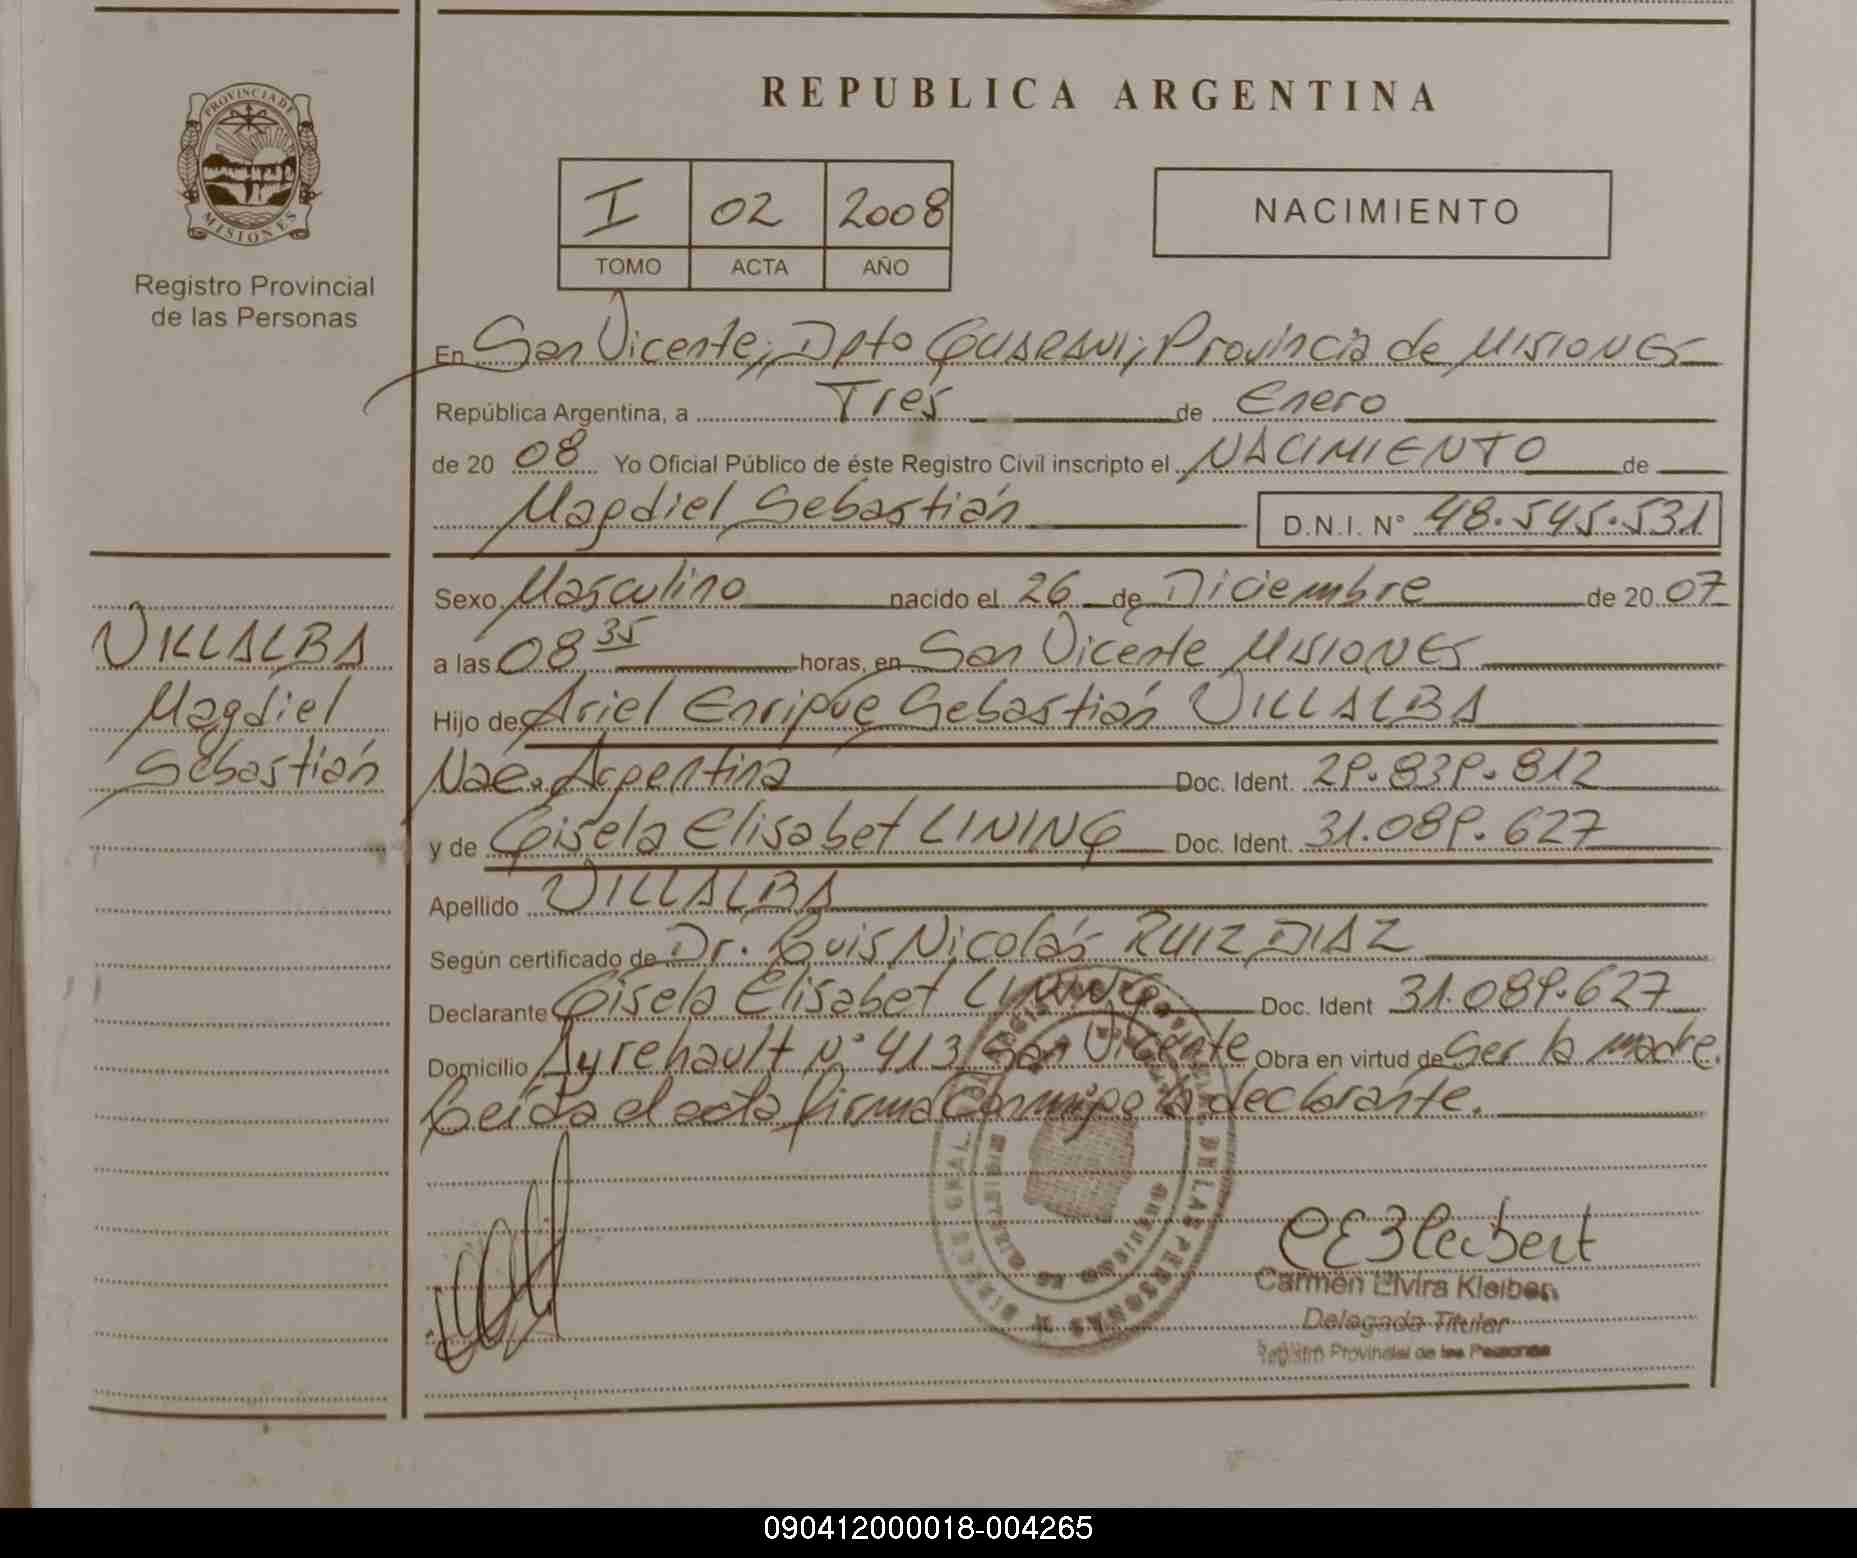 REPUBLICA ARGENTINA
PROVINCIA DE
MISIONES
Registro Provincial
de las Personas
I 02 2008
TOMO ACTA AÑO
NACIMIENTO
En San Vicente; Dpto GUARANI; Provincia de MISIONES
República Argentina, a Tres de Enero
de 20 08 Yo Oficial Público de éste Registro Civil inscripto el NACIMIENTO de
Magdiel Sebastián D.N.I. N° 48.545.531
Sexo Masculino nacido el 26 de Diciembre de 20 07
a las 08 35 horas, en San Vicente MISIONES
Hijo de Ariel Enrique Sebastián VILLALBA
Nac. Argentina Doc. Ident. 29.839.812
y de Gisela Elisabet LINING Doc. Ident. 31.089.627
Apellido VILLALBA
Según certificado de Dr. Luis Nicolás RUIZ DIAZ
Declarante Gisela Elisabet LINING Doc. Ident 31.089.627
Domicilio Ayrehault N° 413 San Vicente Obra en virtud de Ser la madre.
Leída el acta firma Conmigo la declarante.
VILLALBA
Magdiel
Sebastián
DE LAS PERSONAS
CEKleibert
Carmen Elvira Kleibert
Delegada Titular
Registro Provincial de las Personas
090412000018-004265